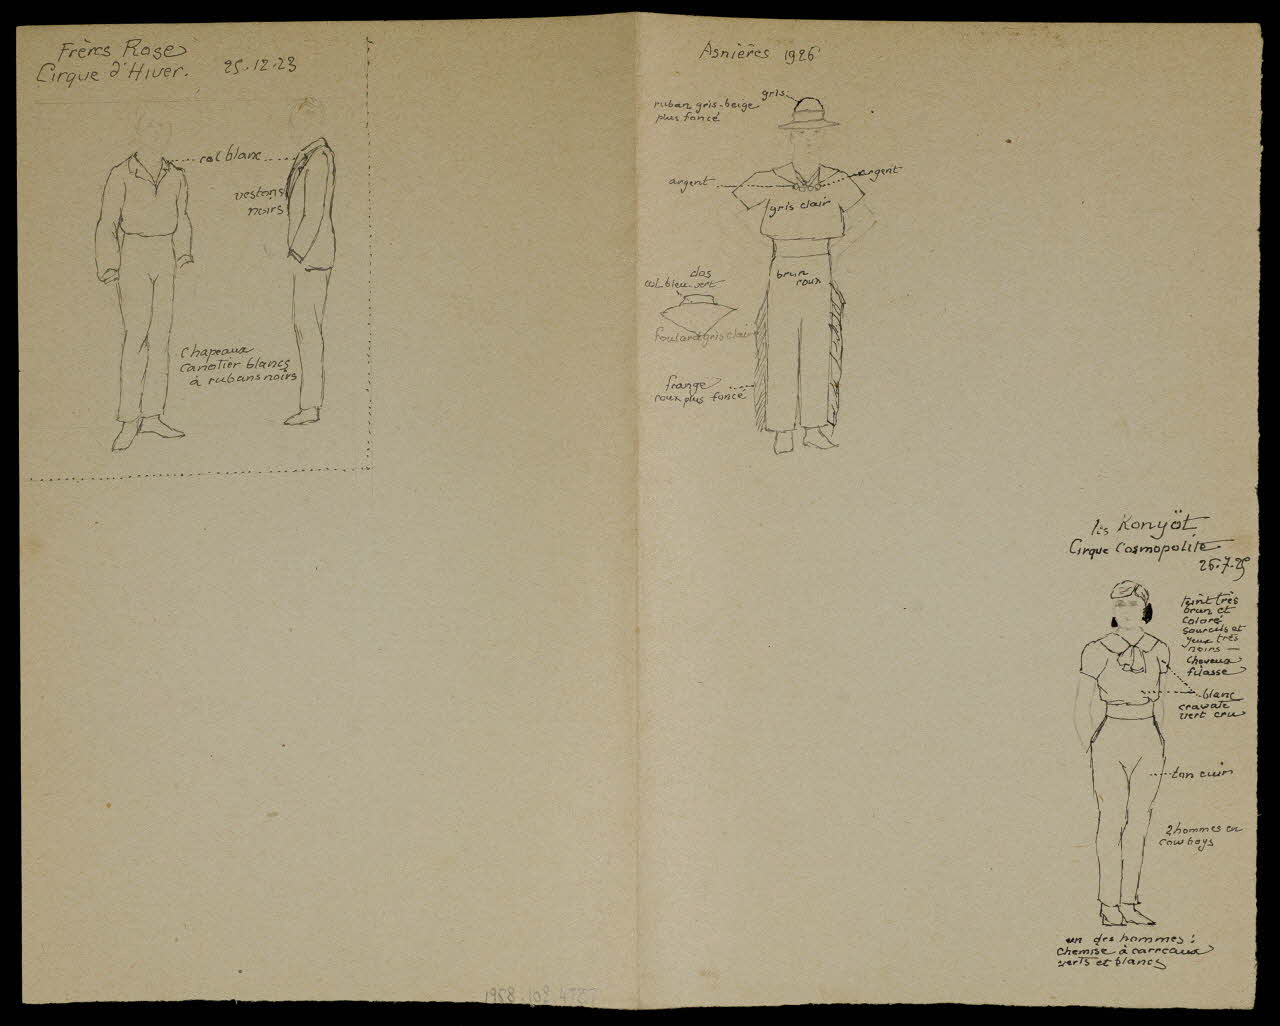 Frères Rose
Cirque d'Hiver. 25.12.23
col blanc
vestons
noirs
Chapeaux
canotier blancs
à rubans noirs
Asnières 1926
gris
ruban gris-beige
plus foncé
argent
argent
gris clair
brun
roux
dos
col bleu-vert
foulard gris clair
frange
roux plus foncé
les Konyöt
Cirque Cosmopolite
26.7.25
teint très
brun et
coloré
sourcils et
yeux très
noirs —
cheveux
filasse
blanc
cravate
vert cru
ton cuir
2 hommes en
cowboys
un des hommes :
chemise à carreaux
verts et blancs